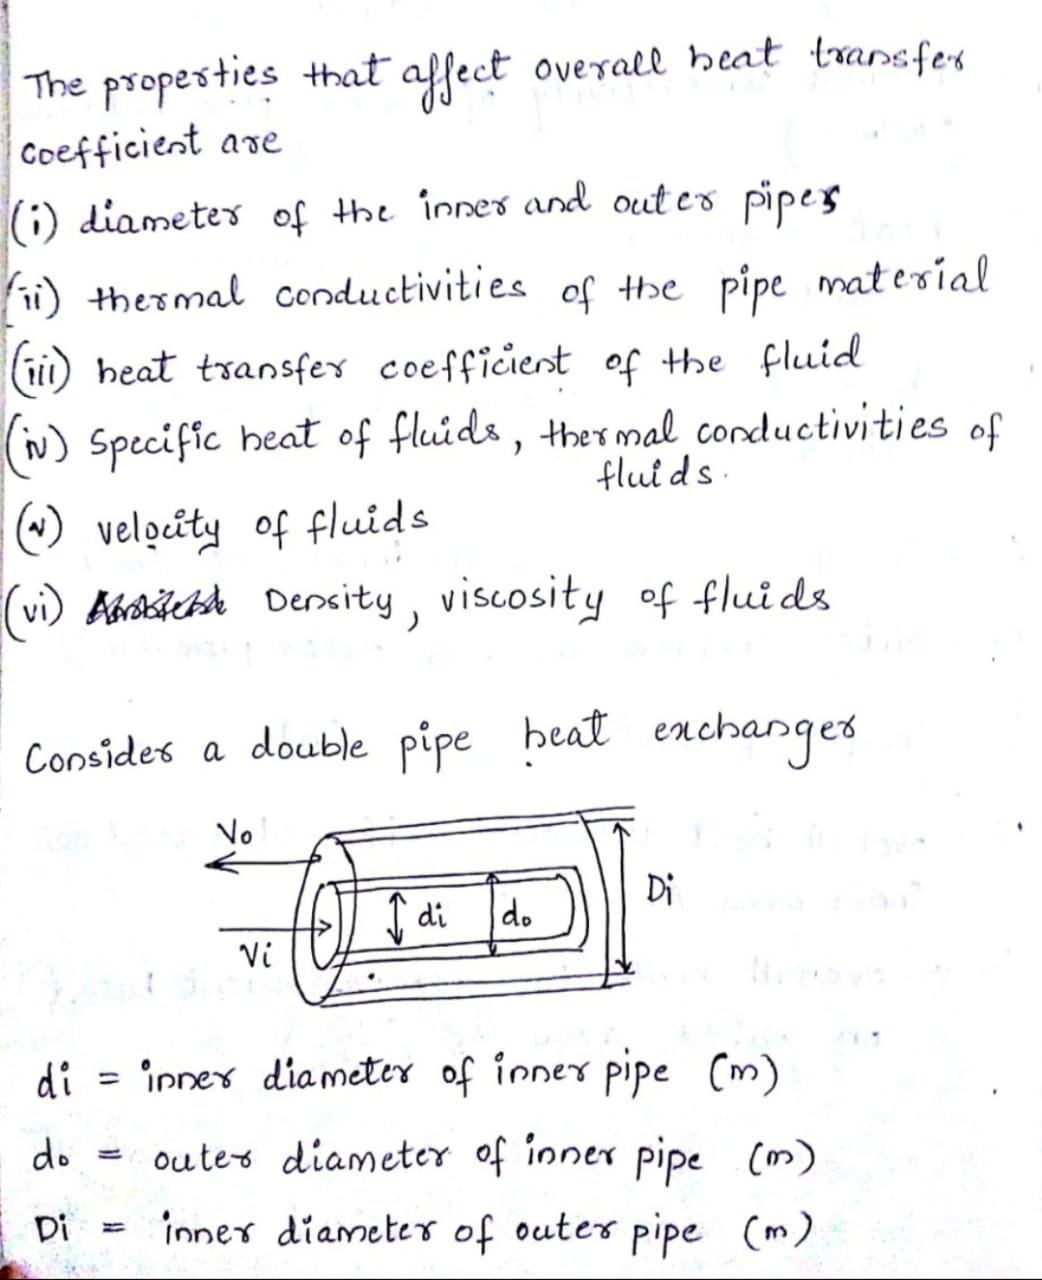 The properties that affect overall heat transfer
coefficient are
(i) diameter of the inner and outer pipes
(ii) thermal conductivities of the pipe material
(iii) heat transfer coefficient of the fluid
(iv) Specific heat of fluids, thermal conductivities of
fluids.
(v) velocity of fluids
(vi) Density, viscosity of fluids
Consider a double pipe heat exchanger
Vo
Di
di do
Vi
di = inner diameter of inner pipe (m)
do = outer diameter of inner pipe (m)
Di = inner diameter of outer pipe (m)